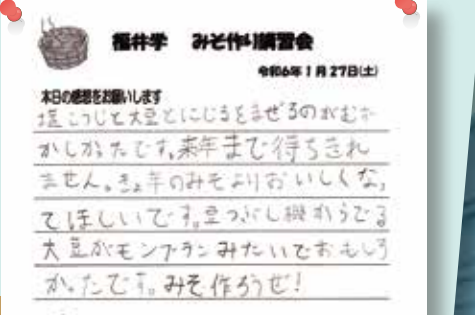 福井学 みそ作り講習会
令和6年1月27日(土)
本日の感想をお願いします
塩こうじと大豆とにじるをまぜるのがむず
かしかったです。来年まで待ちきれ
ません。きょ年のみそよりおいしくなっ
てほしいです。豆つぶし機からでる
大豆がモンブランみたいでおもしろ
かったです。みそ作ろうぜ!